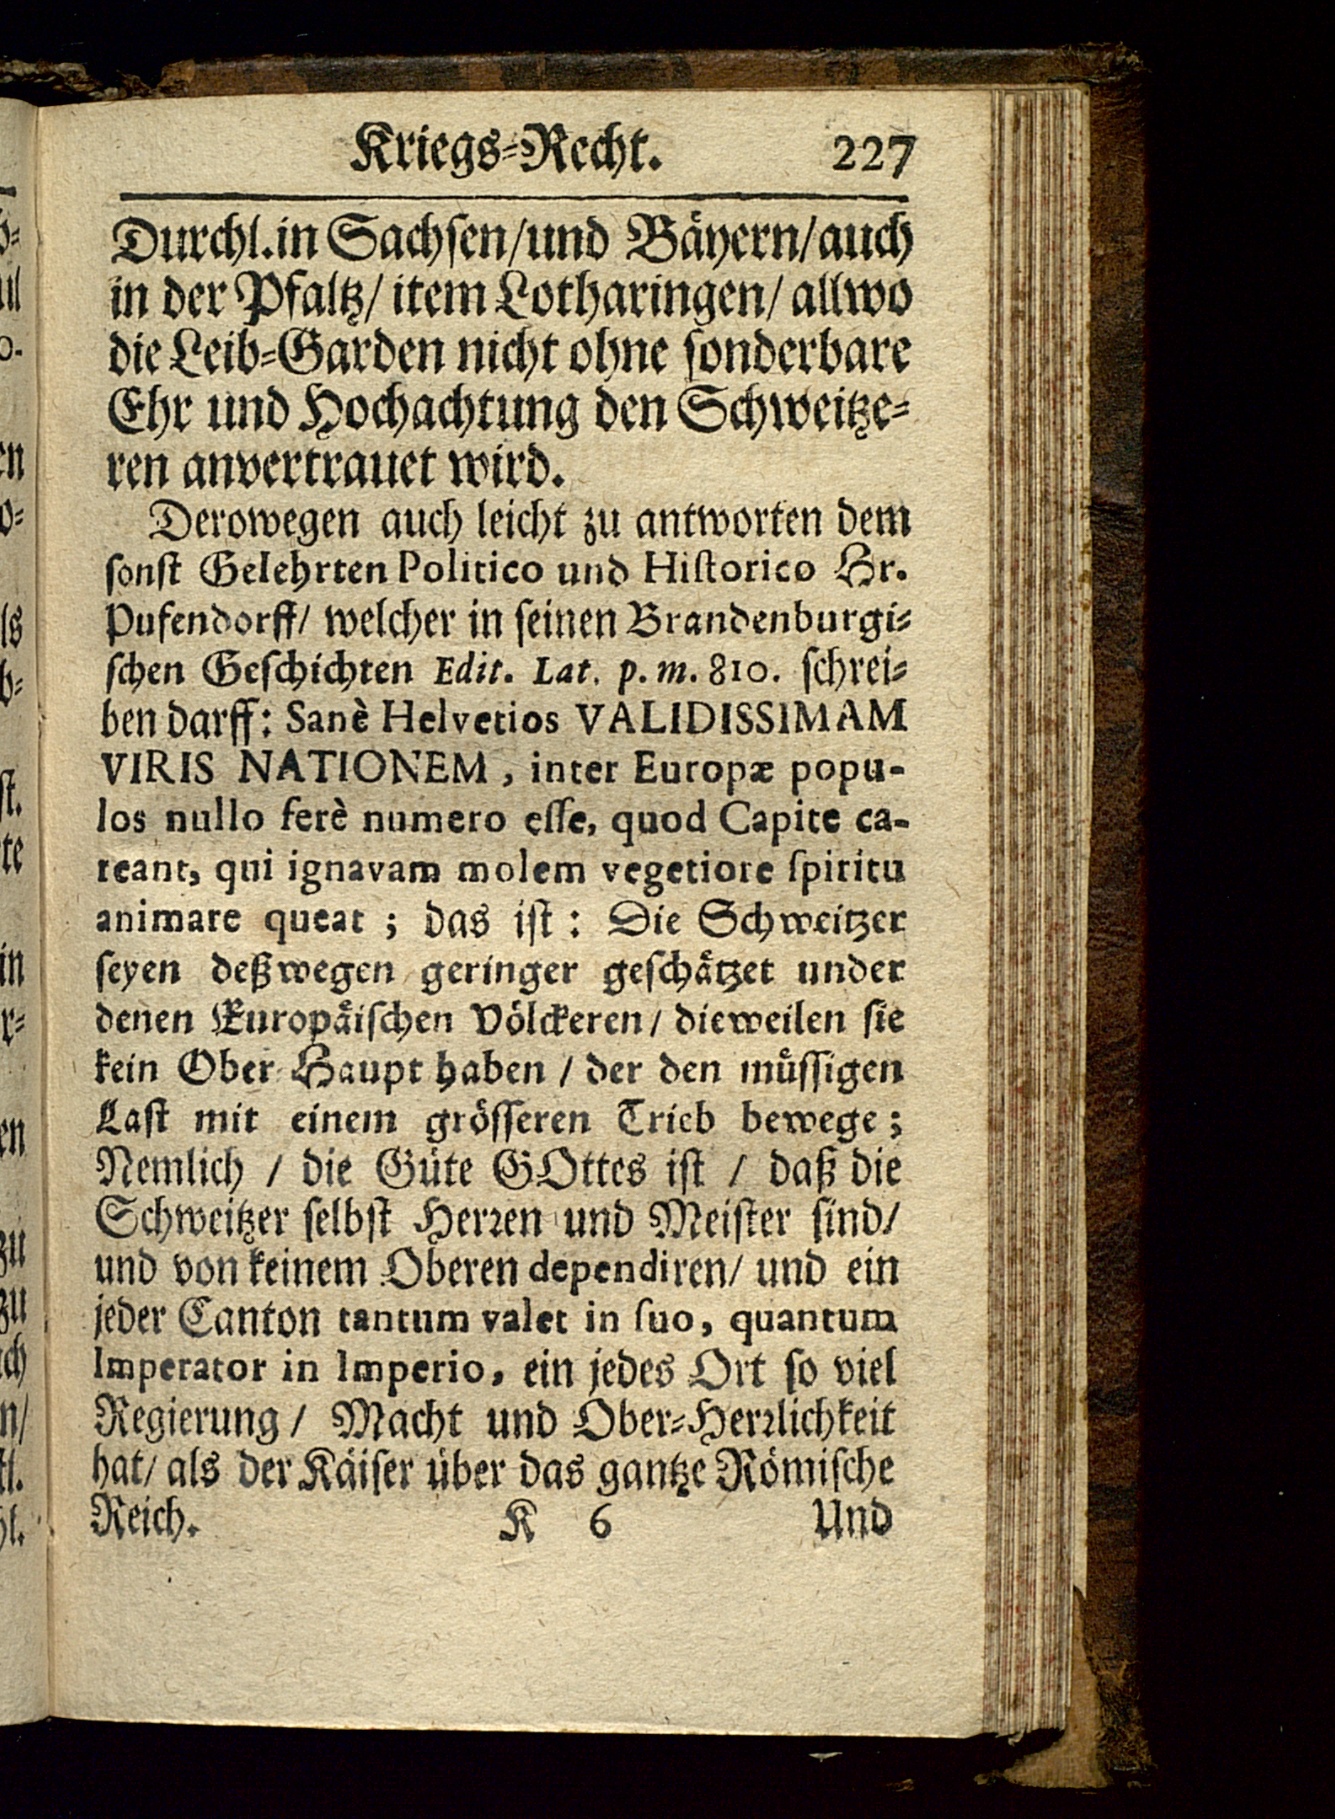 Kriegs-Recht. 227
Durchl. in Sachsen/ und Bäyern/ auch
in der Pfaltz/ item Lotharingen/ allwo
die Leib-Garden nicht ohne sonderbare
Ehr und Hochachtung den Schweitze-
ren anvertrauet wird.
Derowegen auch leicht zu antworten dem
sonst Gelehrten Politico und Historico Hr.
Pufendorff/ welcher in seinen Brandenburgi-
schen Geschichten Edit. Lat. p. m. 810. schrei-
ben darff: Sanè Helvetios VALIDISSIMAM
VIRIS NATIONEM, inter Europæ popu-
los nullo ferè numero esse, quod Capite ca-
reant, qui ignavam molem vegetiore spiritu
animare queat; das ist: Die Schweitzer
seyen deßwegen geringer geschätzet under
denen Europäischen Völckeren/ dieweilen sie
kein Ober-Haupt haben/ der den müssigen
Last mit einem grösseren Trieb bewege;
Nemlich/ die Güte GOttes ist/ daß die
Schweitzer selbst Herren und Meister sind/
und von keinem Oberen dependiren/ und ein
jeder Canton tantum valet in suo, quantum
Imperator in Imperio, ein jedes Ort so viel
Regierung/ Macht und Ober-Herrlichkeit
hat/ als der Käiser über das gantze Römische
Reich. K 6 Und